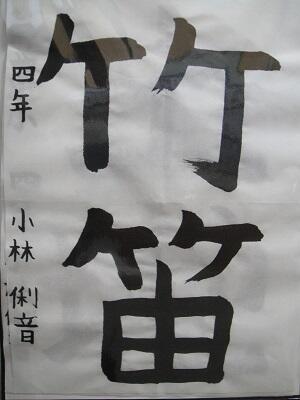 竹笛
四年 小林 俐音